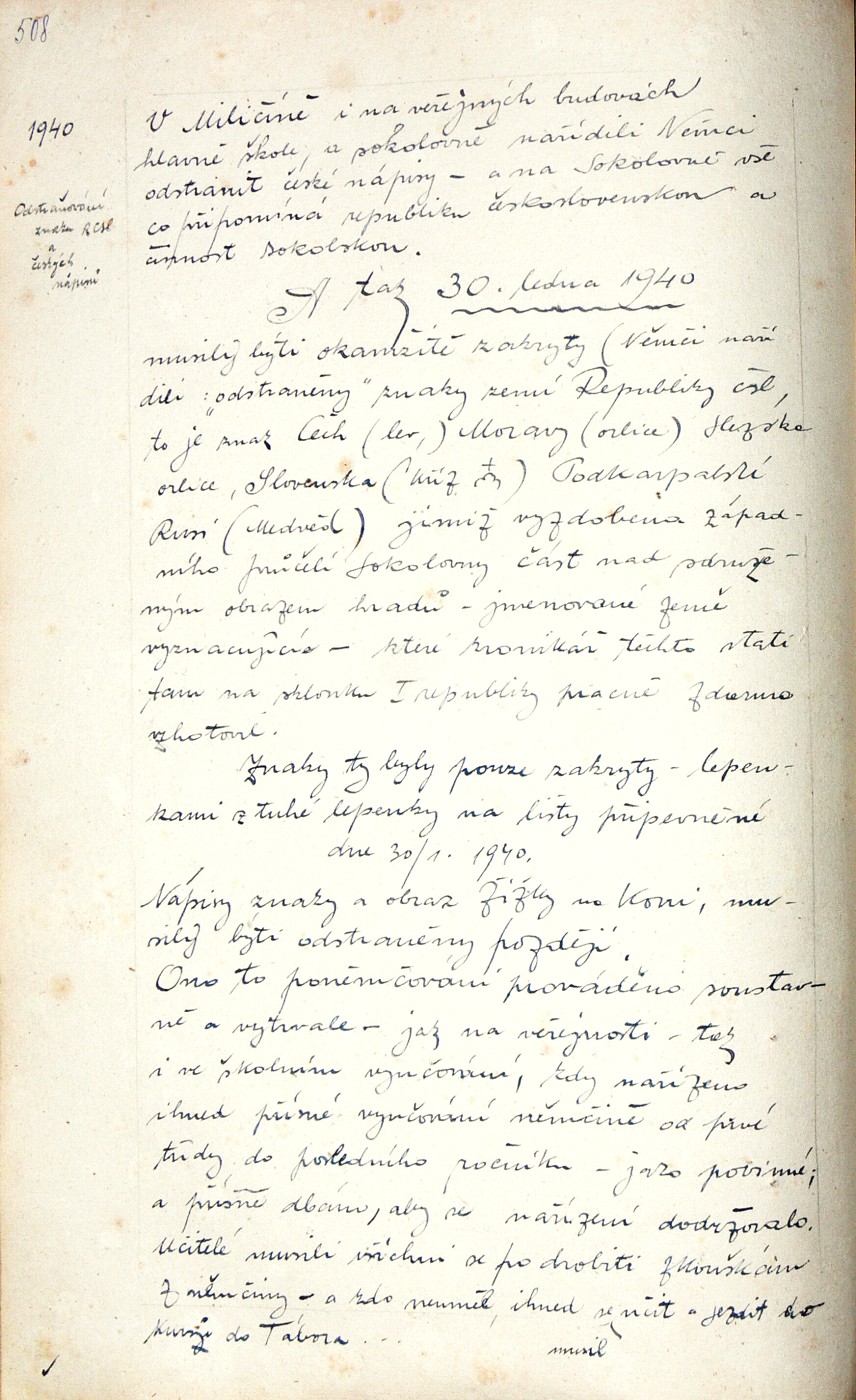 508
1940
Odstraňování
znaku RČSl
a
českých
nápisů
V Miličíně i na veřejných budovách
hlavně škole, a sokolovně nařídili Němci
odstranit české nápisy – a na Sokolovně vše
co připomíná republiku československou a
činnost sokolskou.
A tak 30. ledna 1940
musily býti okamžitě zakryty (Němci naří
dili: "odstraněny" znaky zemí Republiky čsl,
to je znak Čech (lev,) Moravy (orlice) Slezska
orlice, Slovenska (kříž) Podkarpatské
Rusi (Medvěd) jimiž vyzdobena západ-
ního průčelí Sokolovny část nad sdruže-
ným obrazem hradů – jmenované země
vyznačujíció – které kronikář těchto statí
tam na sklonku I republiky pracně zdarma
zhotovil.
Znaky ty byly pouze zakryty – lepen-
kami z tuhé lepenky na lišty připevněné
dne 30/1. 1940.
Nápisy znaky a obraz Žižky na Koni, mu-
sily býti odstraněny později.
Ono to poněmčování prováděno soustav-
ně a vytrvale – jak na veřejnosti – tak
i ve školním vyučování, kdy nařízeno
ihned přísné vyučování němčině od prvé
třídy do posledního ročníku – jako povinné;
a přísně dbáno, aby se nařízení dodržovalo.
Učitelé musili všichni se podrobiti zkouškám
z němčiny – a kdo neuměl, ihned se učit a jezdit do
kursů do Tábora ...
musil